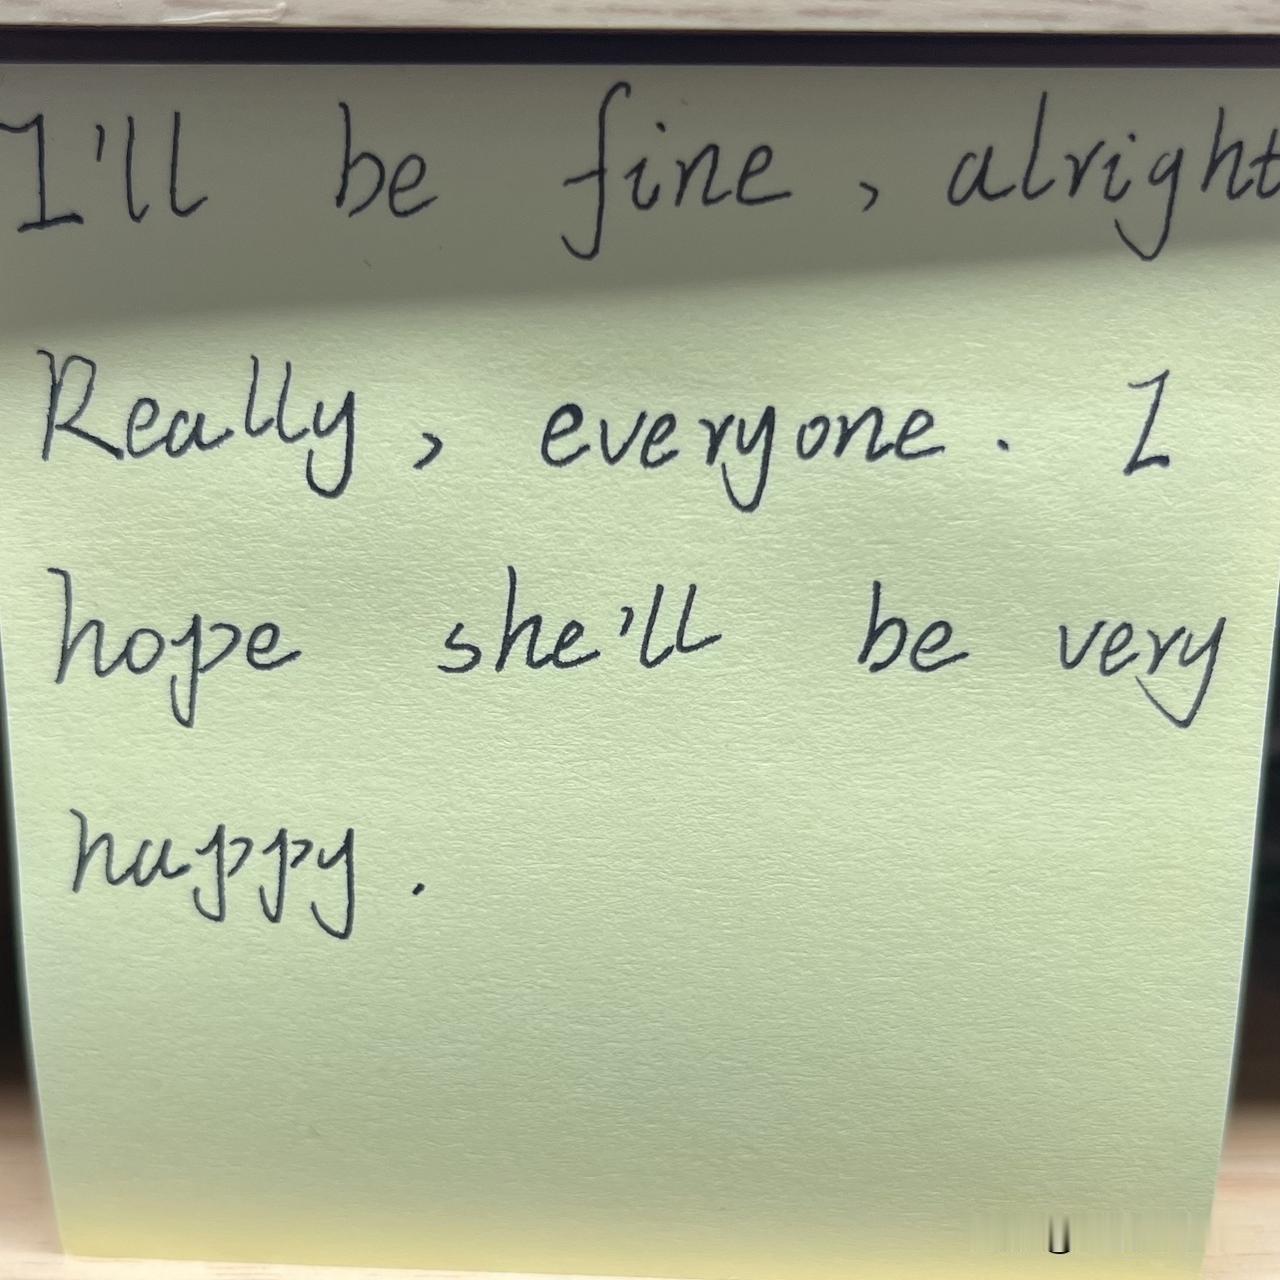 I'll be fine, alright
Really, everyone. I
hope she'll be very
happy.